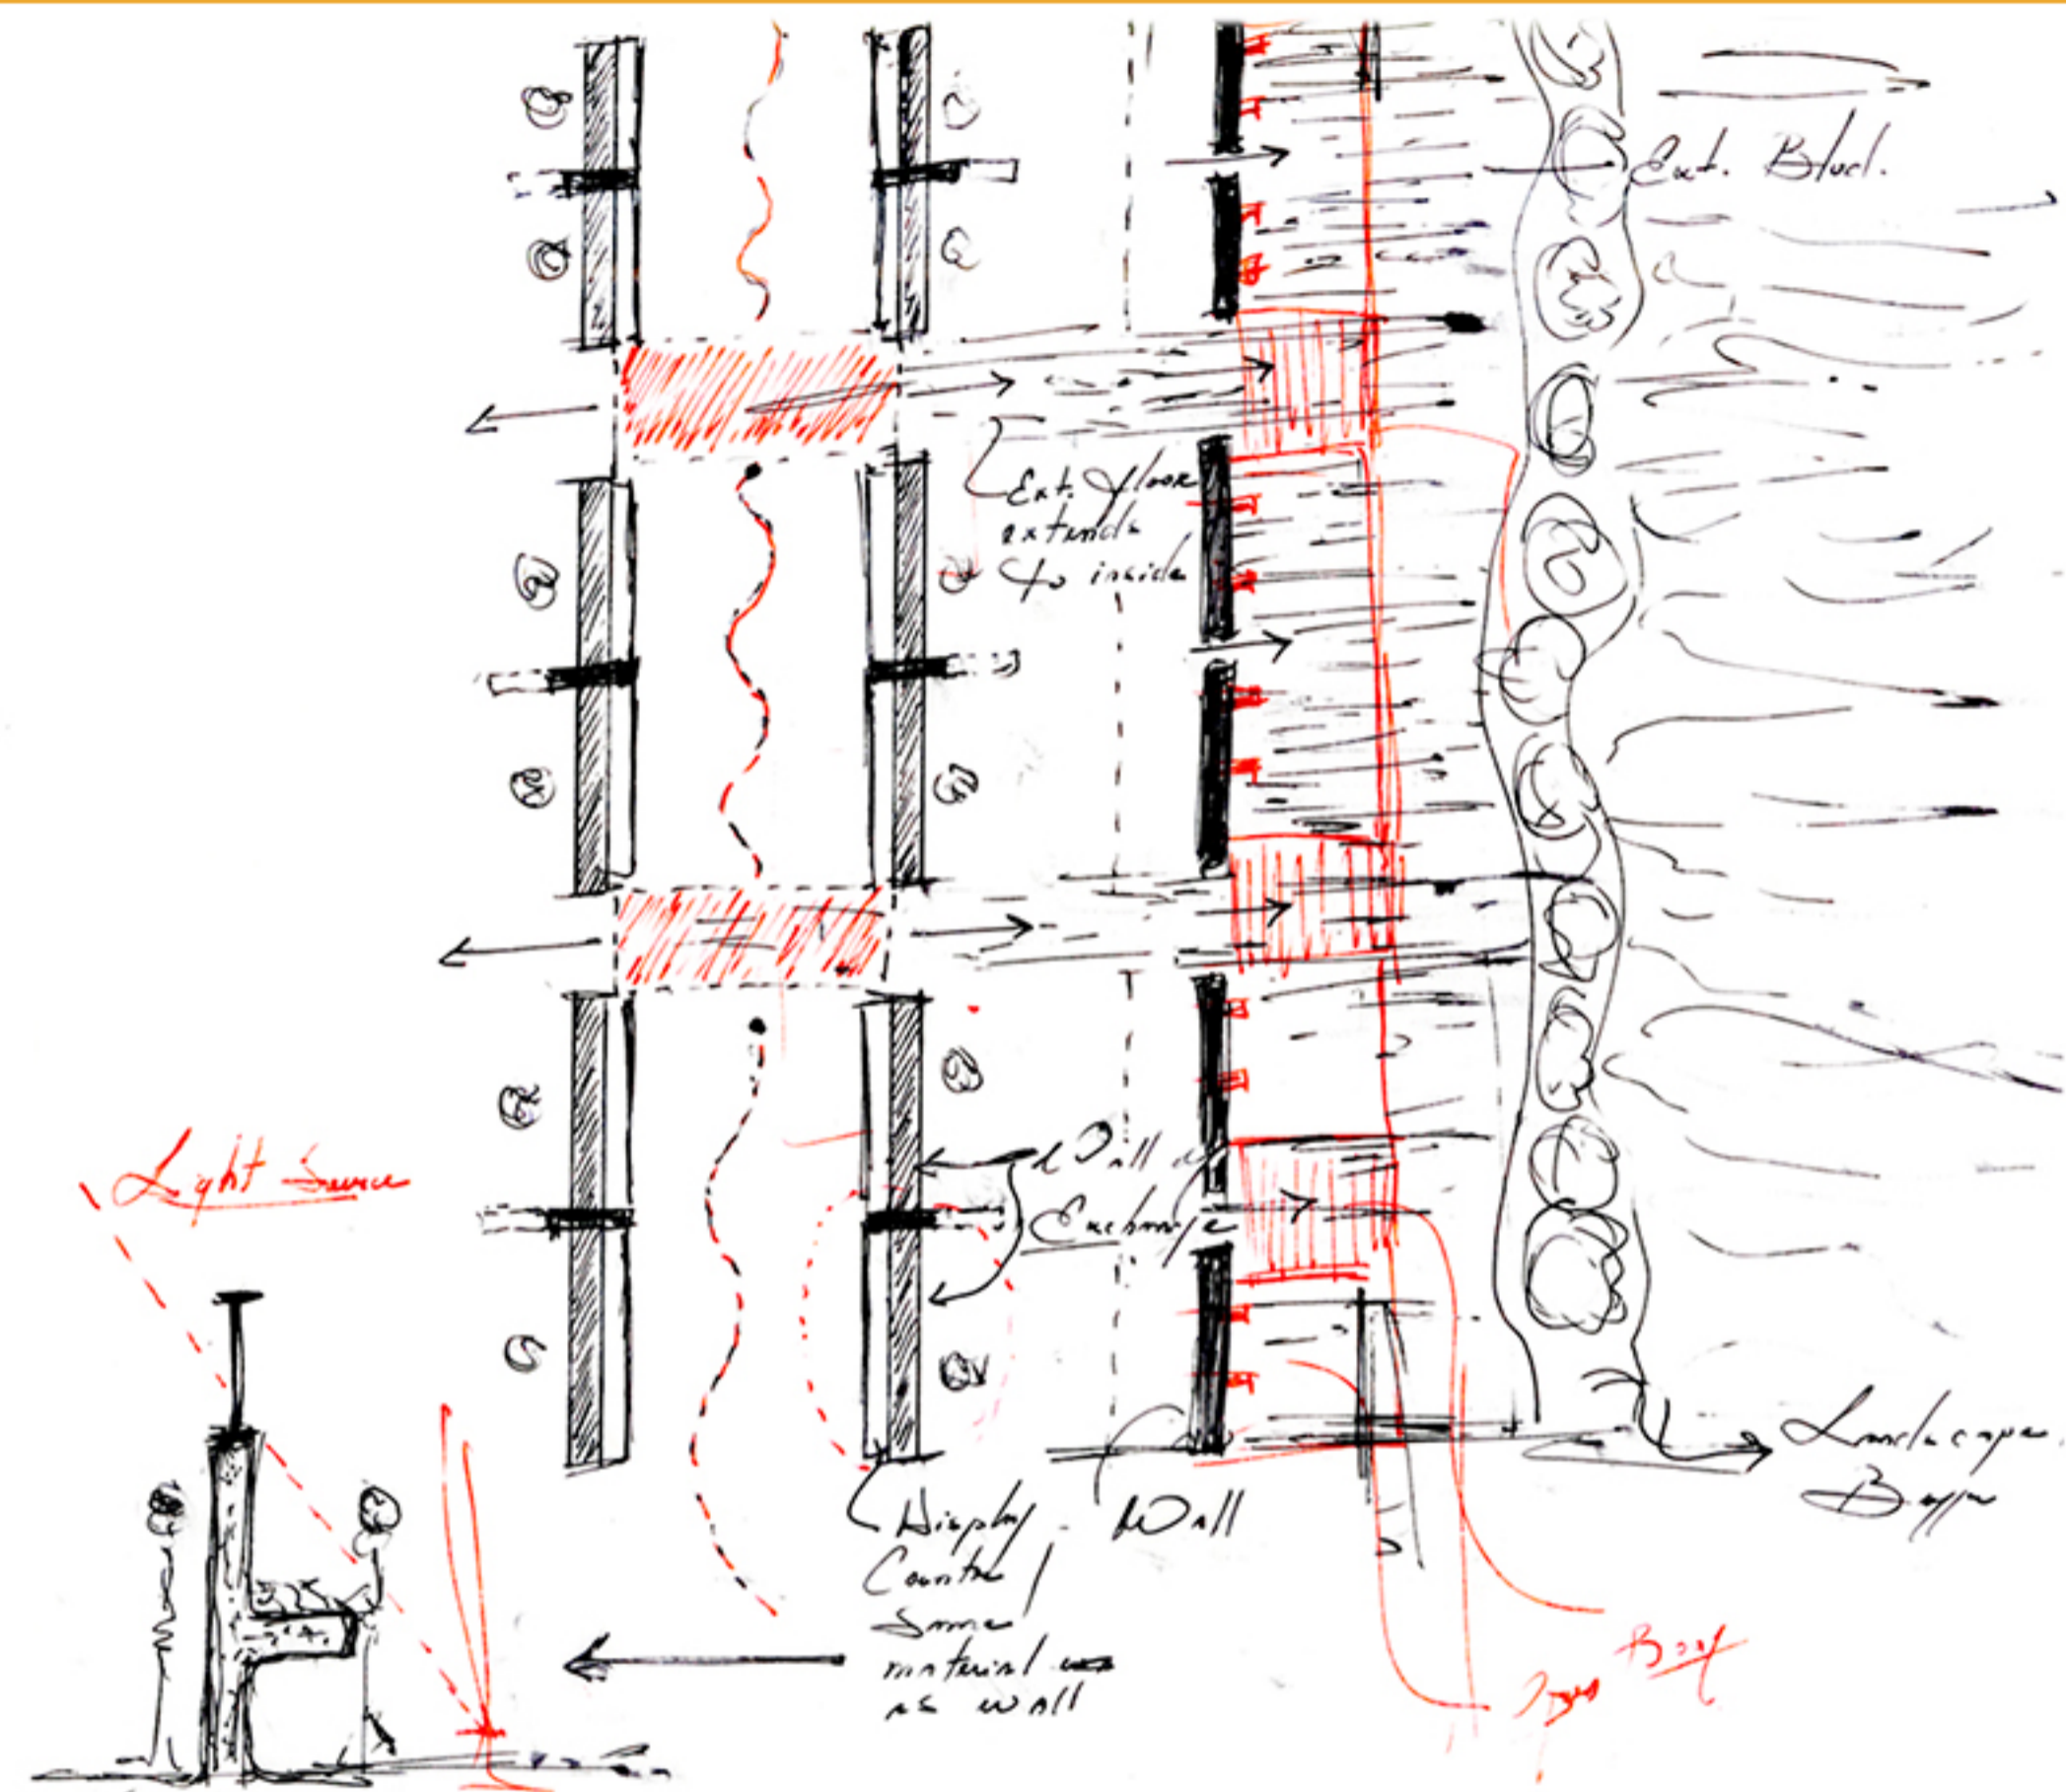 Ext. Blvd.
Ext. floor
extends
to inside
Light Source
Wall of
Exchange
Landscape
Display
Counter
Same
material
as wall
Wall
Roof